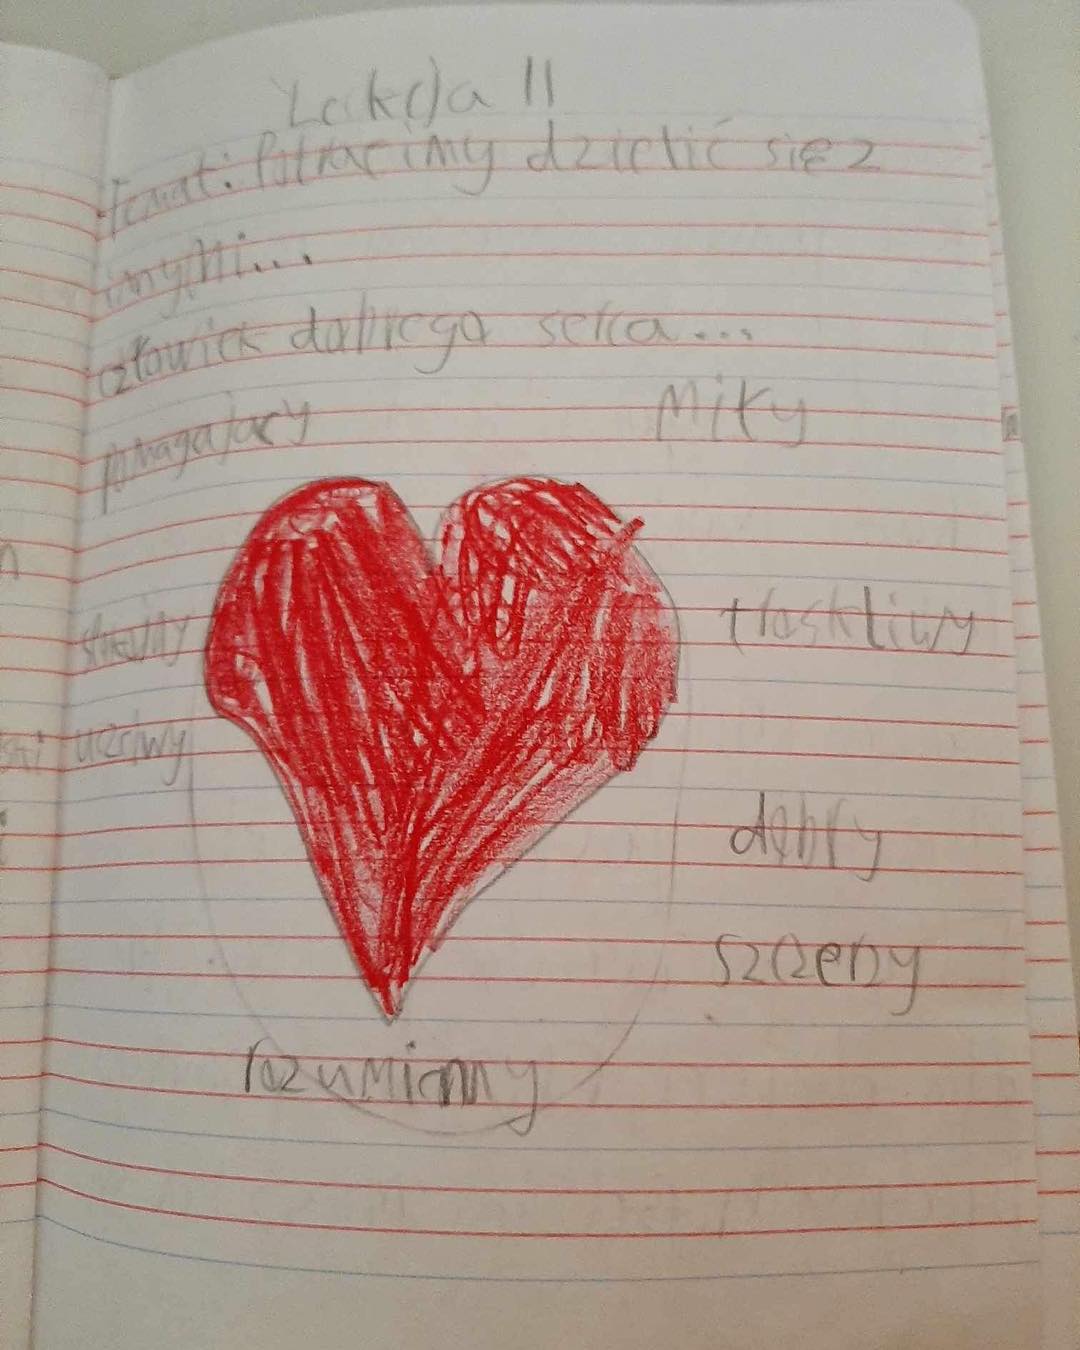 Lekcja 11
Temat: Potrafimy dzielić się z
innymi...
człowiek dobrego serca...
pomagający
Miły
troskliwy
uczciwy
dobry
szczery
rozumiany